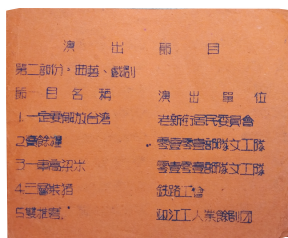 演出節目
第二部份·曲藝、戲劇
節目名稱 演出單位
1.一定要解放台湾 岩新街居民委員會
2.賣餘糧 零壹零壹部隊文工隊
3.一車高粱米 零壹零壹部隊文工隊
4.三審裝潢 鉄路工會
5.雙推 江工人業餘劇团